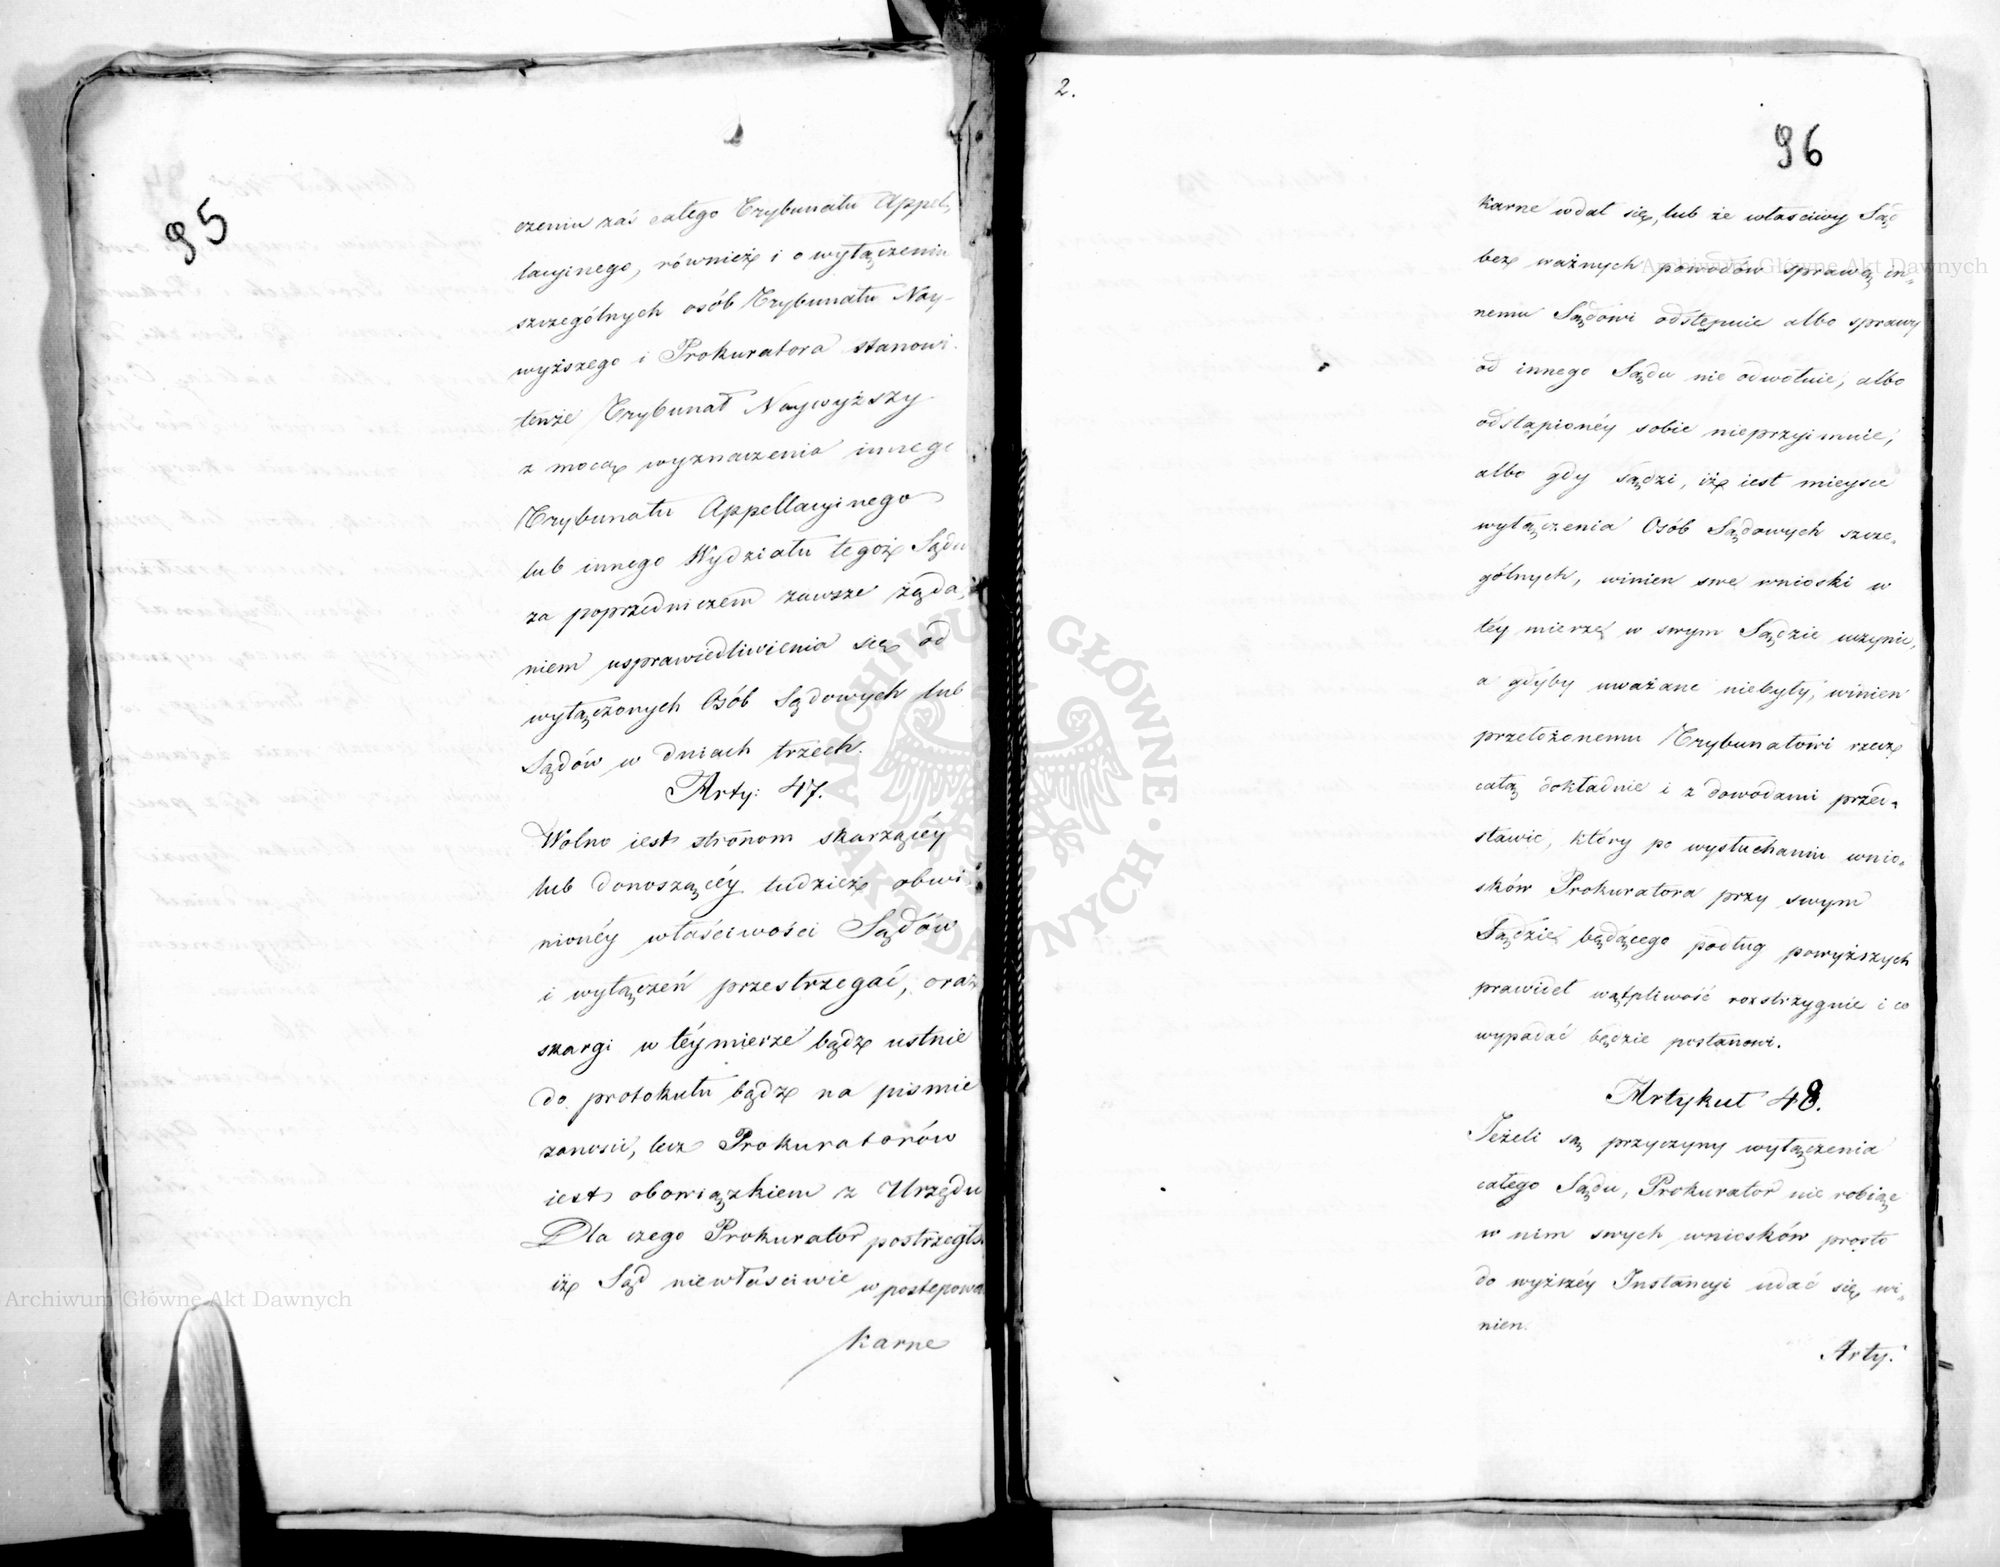 95
czeniu zaś całego Trybunału Appel,
lacyinego, również i o wyłączeniu
szczególnych osób Trybunału Nay-
wyższego i Prokuratora stanowi
tenże Trybunał Naywyższy
z mocą wyznaczenia innego
Trybunału Appellacyinego
lub innego Wydziału tegoż Sądu
za poprzedniczem zawsze żąda,
niem usprawiedliwienia się od
wyłączonych Osób Sądowych lub
Sądów w dniach trzech.
Arty: 47.
Wolno iest stronom skarzącéy
lub donoszącéy tudzież obwi,
nionéy właściwości Sądów
i wyłączeń przestrzegać, oraz
skargi w téy mierze bądz ustnie
do protokułu bądz na pismie
zanosić, lecz Prokuratorów
iest obowiązkiem z Urzędu
Dla czego Prokurator postrzegłsz
iż Sąd niewłaściwie w postepowa
karne
2.
96
karne wdał się, lub że właściwy Sąd
bez ważnych powodów sprawę in-
nemu Sądowi odstępuie albo sprawy
od innego Sądu nie odwołuie, albo
odstąpionéy sobie nieprzyimuie,
albo gdy sądzi, iż iest mieysce
wyłączenia Osób Sądowych szcze-
gólnych, winien swe wnioski w
téy mierze w swym Sądzie uczynić,
a gdyby uważane niebyły, winien
przełożonemu Trybunałowi rzecz
całą dokładnie i z dowodami przed-
stawić, który po wysłuchaniu wnio-
sków Prokuratora przy swym
Sądzie będącego podług powyższych
prawideł wątpliwość rozstrzygnie i co
wypadać będzie postanowi.
Artykuł 48.
Jeżeli są przyczyny wyłączenia
całego Sądu, Prokurator nie robiąc
w nim swych wniosków prosto
do wyższéy Instancyi udać się wi-
nien.
Arty.
Archiwum Główne Akt Dawnych
Archiwum Główne Akt Dawnych
ARCHIWUM GŁÓWNE AKT DAWNYCH